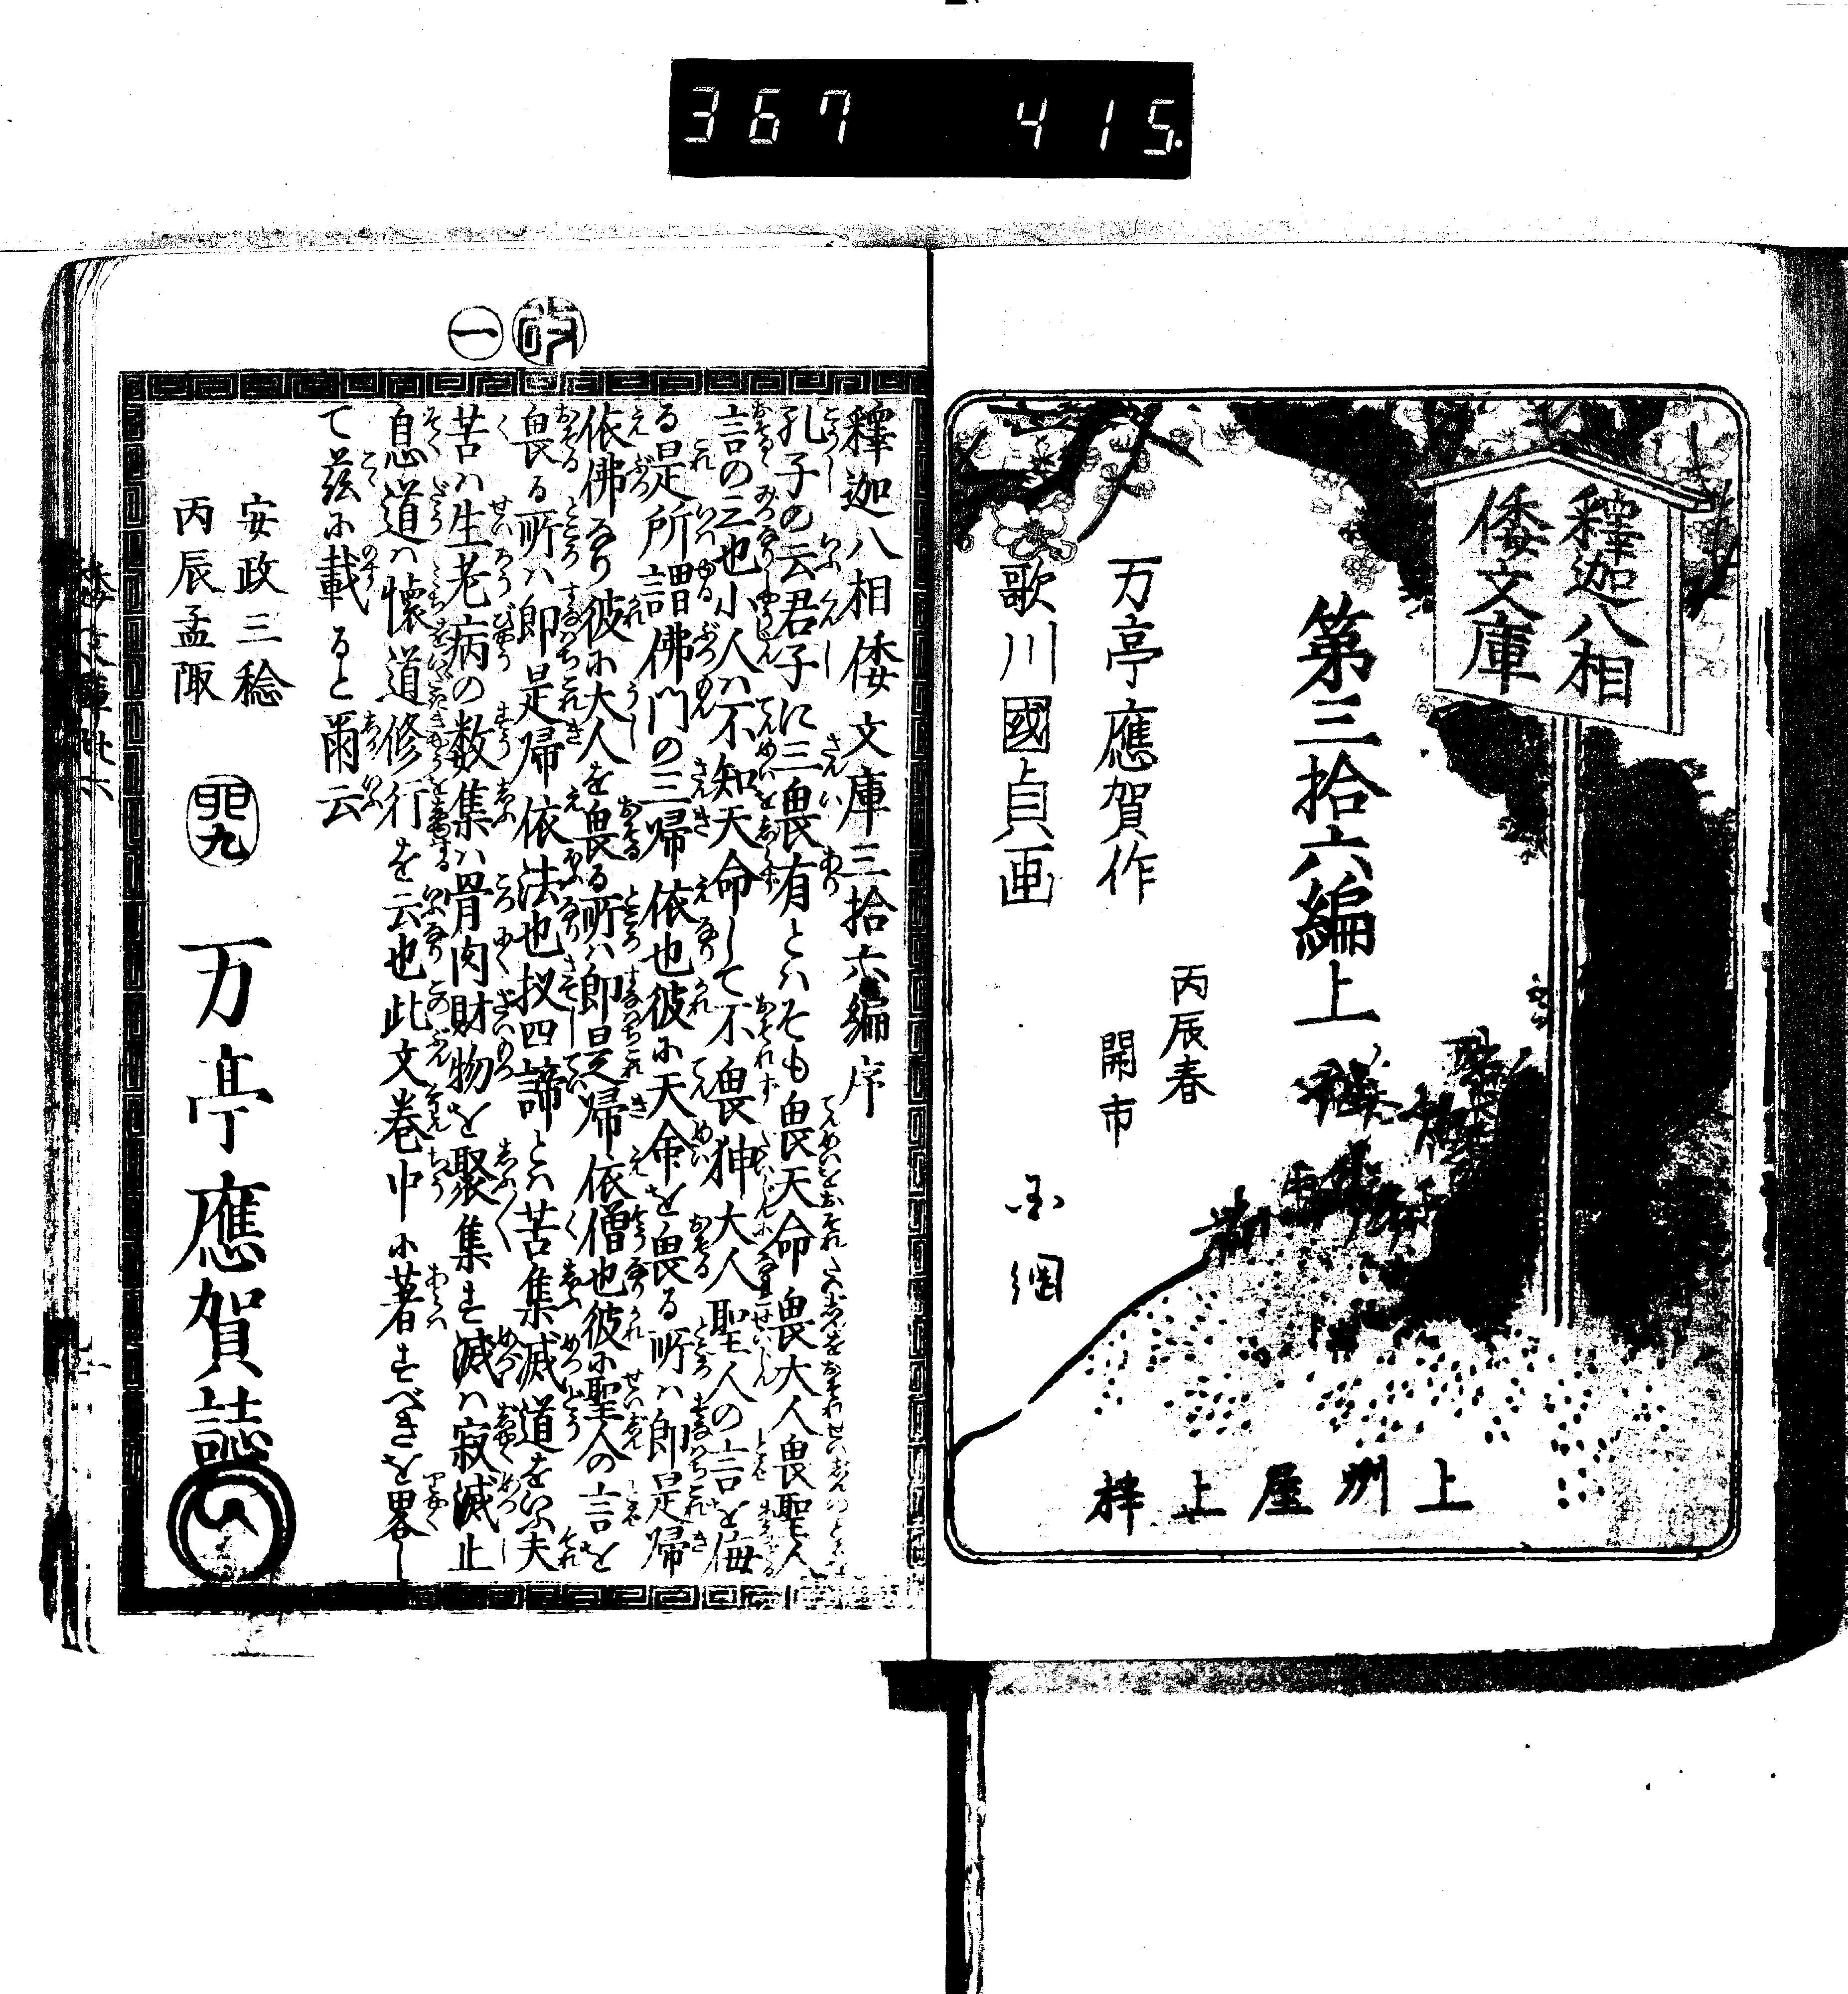 367 415.
釋迦八相
倭文庫
第三拾六編上
丙辰春
開市
万亭應賀作
歌川國貞画
上州屋上梓
改
一
釋迦八相倭文庫三拾六編序
孔子の云君子に三畏有とハそも畏天命畏大人畏聖人
言の三也小人ハ不知天命して不畏狎大人聖人の言を侮
る是所謂佛門の三帰依也彼に天命を畏る所ハ即是帰
依佛なり彼に大人を畏る所ハ即是帰依僧也彼に聖人の言を
畏る所ハ即是帰依法也扨四諦とハ苦集滅道をいふ夫
苦ハ生老病の数集ハ骨肉財物を聚集す滅ハ寂滅止
息道ハ懐道修行を云也此文巻中に著すべきを畧し
て茲に載ると爾云
安政三稔
丙辰孟陬
万亭應賀誌